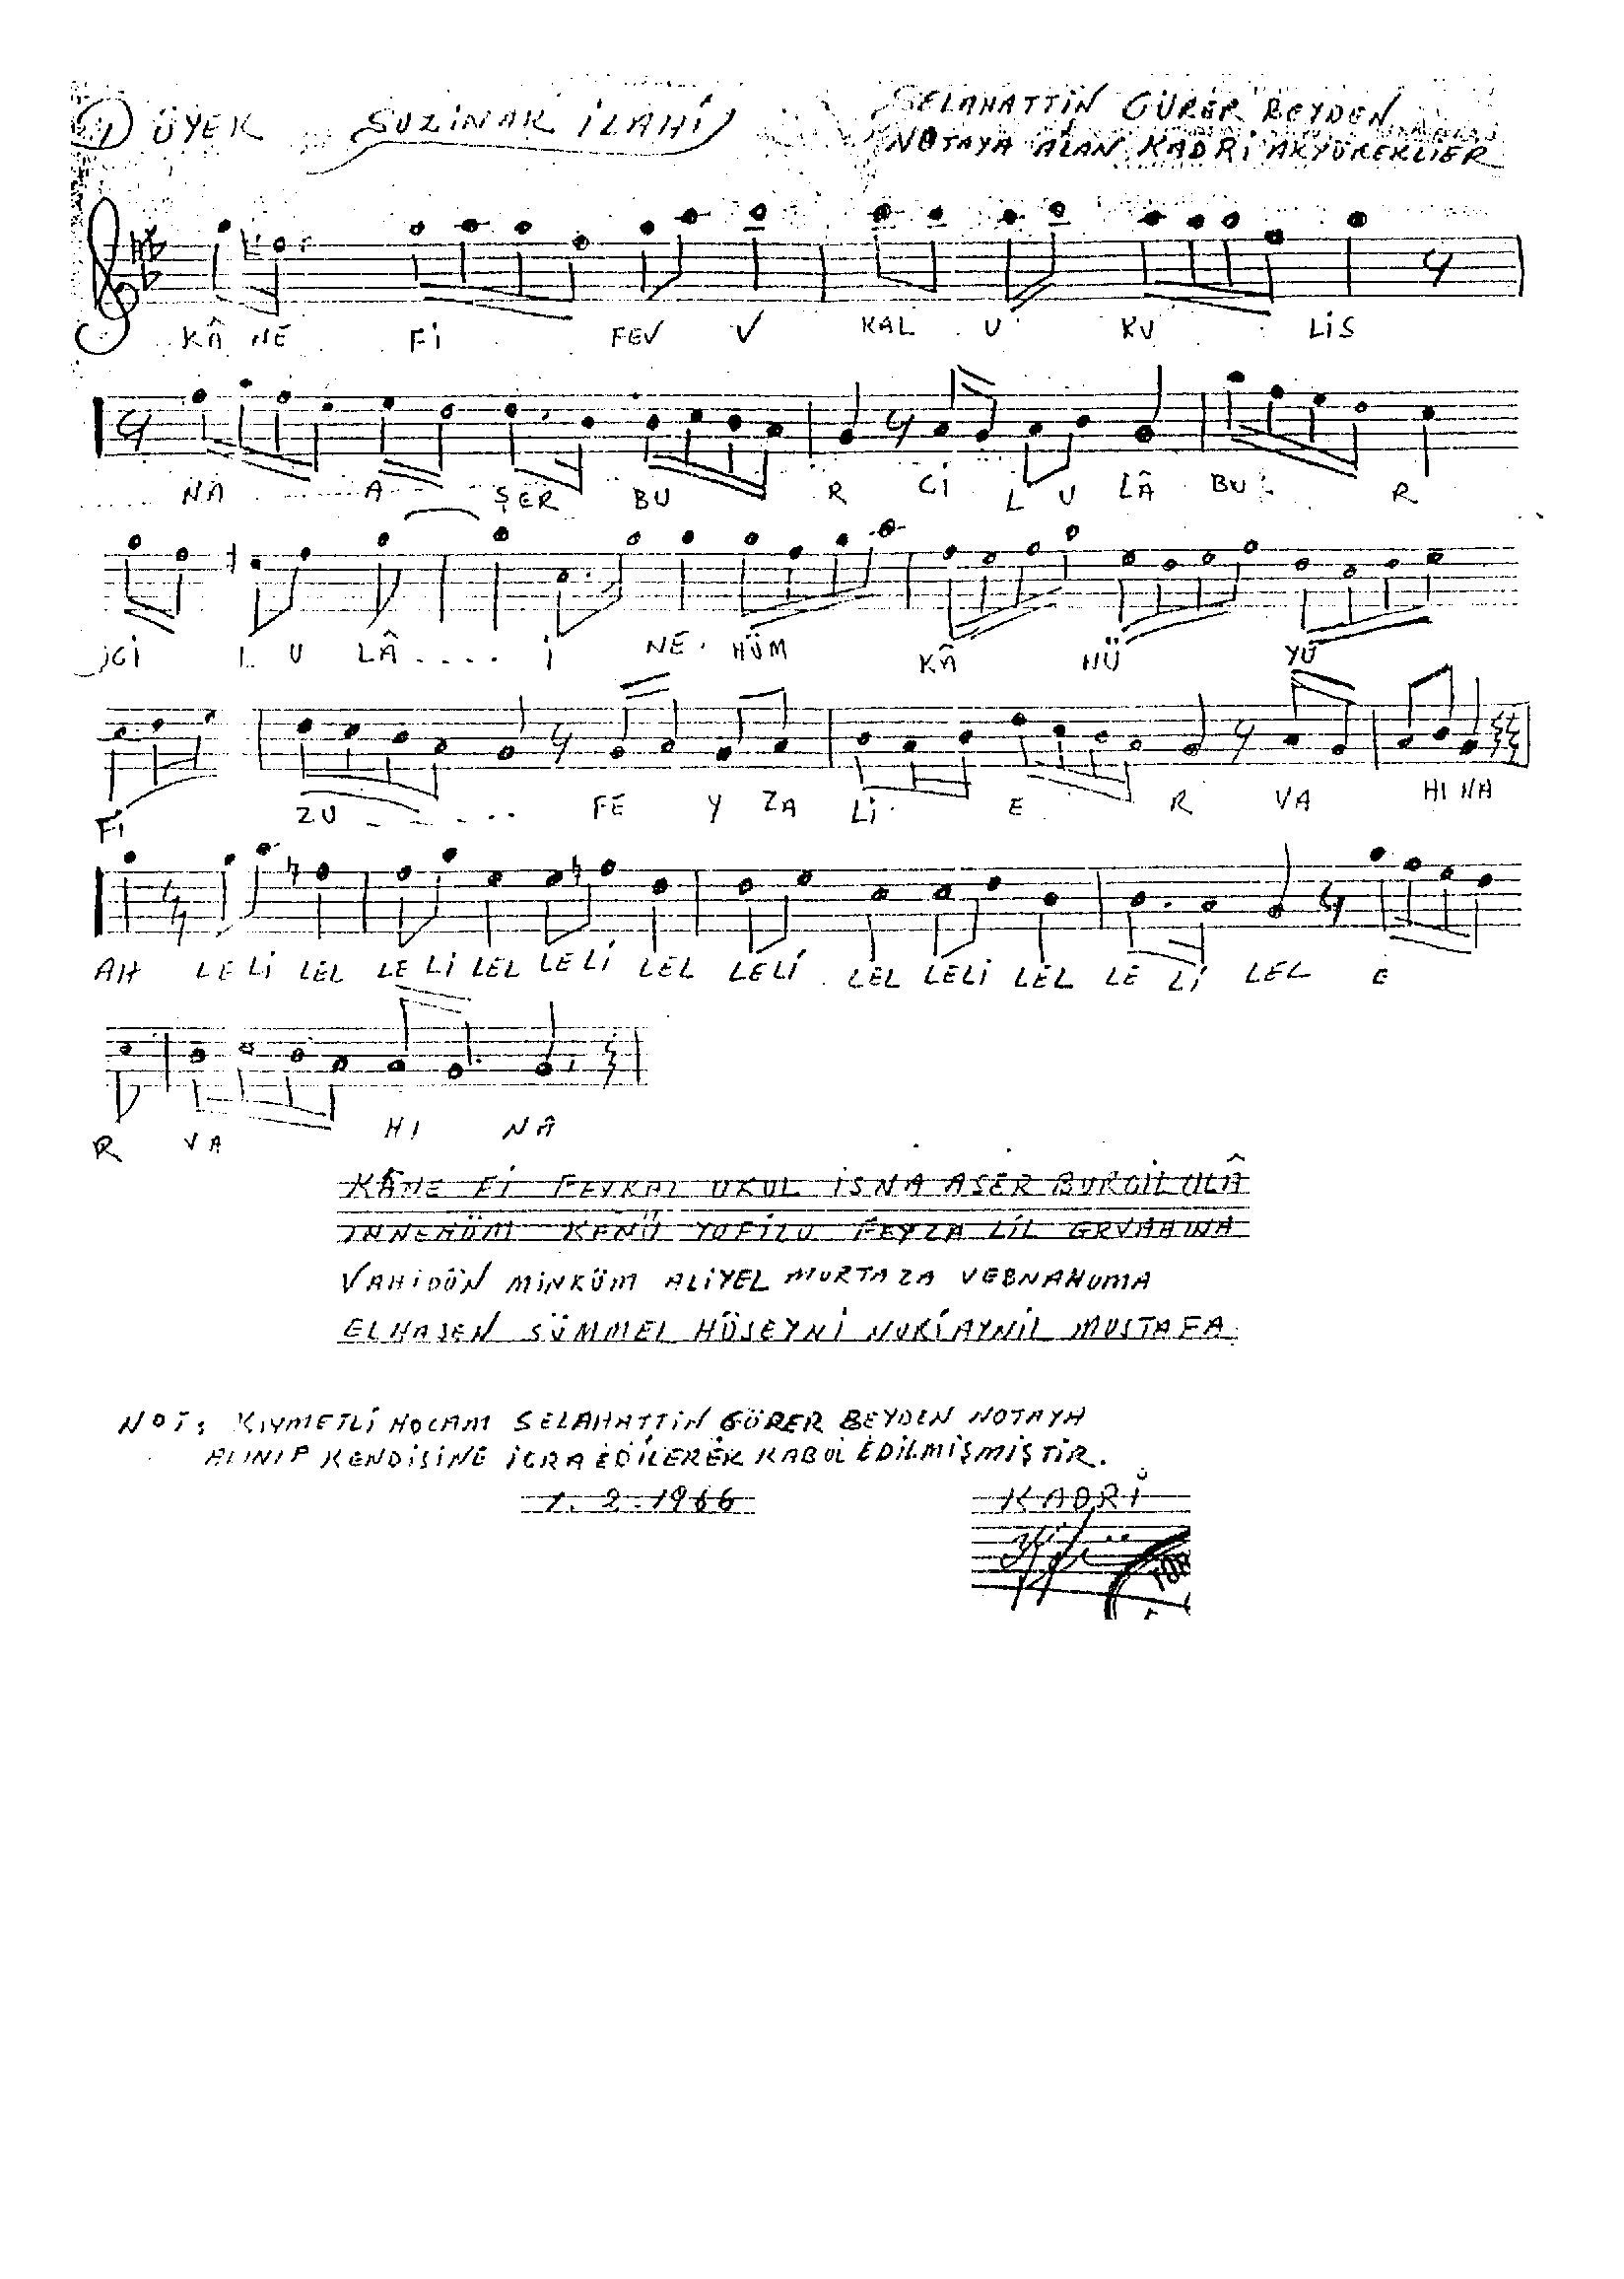 1 ÜYEK SUZİNAK İLAHİ SELAHATTİN GÜRER BEYDEN
NOTAYA ALAN KADRİ AKYÜREKLİER
KÂ NE Fİ FEV V KAL U KU LİS
NA A ŞER BU R Cİ L U LÂ BU R
Cİ L U LÂ.... İ NE HÜM KÂ NÜ YÜ
Fİ ZU FE Y ZA Lİ E R VA HI NA
AH LE Lİ LEL LE Lİ LEL LE Lİ LEL LELİ LEL LELİ LEL LE Lİ LEL E
R VA HI NÂ
KÂNE Fİ FEVKAL UKUL İSNA ASER BURCİL ULÂ
INNEHÜM KENÜ YUFİZU FEYZA LİL ERVAHINA
VAHİDÜN MİNKÜM ALİYEL MURTAZA VEBNAHUMA
ELHASEN SÜMMEL HÜSEYNİ NURİAYNİL MUSTAFA
NOT: KIYMETLİ HOCAM SELAHATTİN GÜRER BEYDEN NOTAYA
ALINIP KENDİSİNE İCRA EDİLEREK KABUL EDİLMİŞMİŞTİR.
1.2.1966 KADRİ